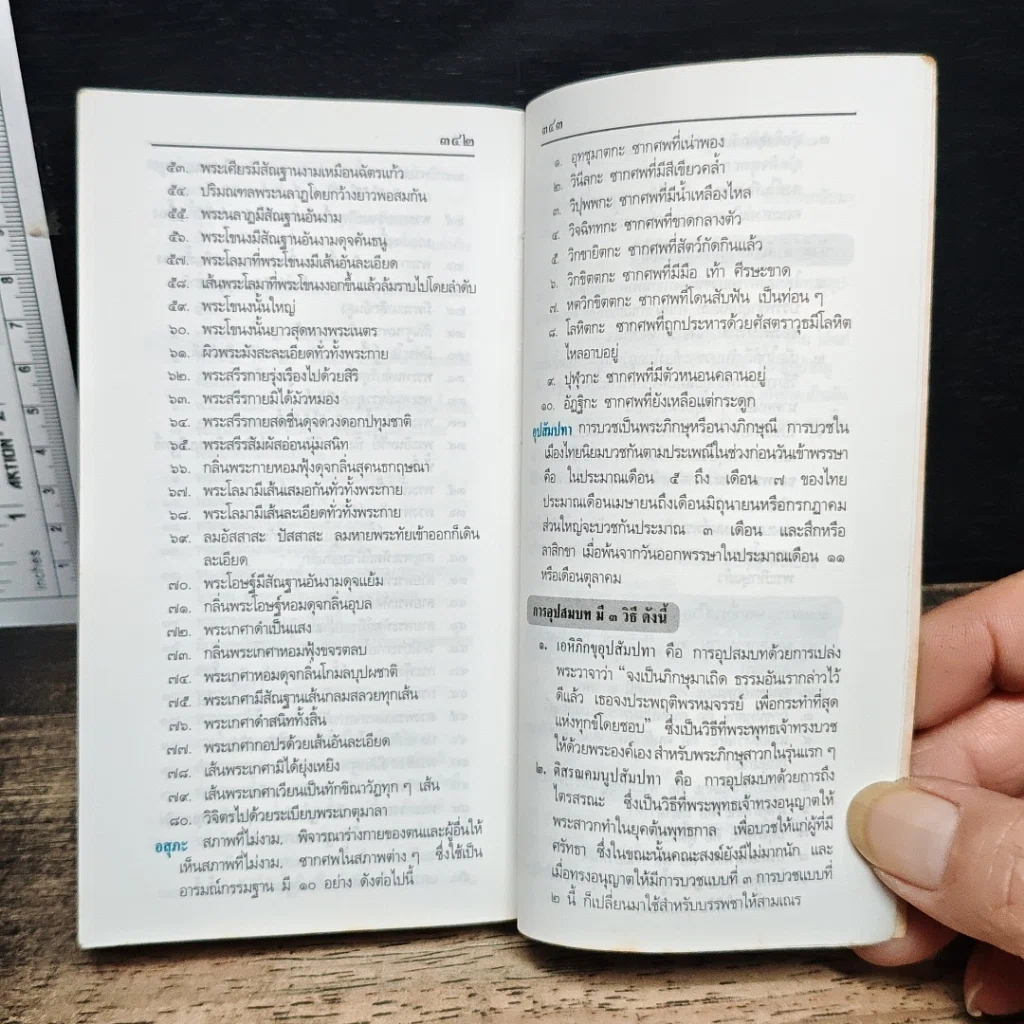 ๓๔๒
๕๓. พระเศียรมีสัณฐานงามเหมือนฉัตรแก้ว
๕๔. ปริมณฑลพระนลาฏโดยกว้างยาวพอสมกัน
๕๕. พระนลาฏมีสัณฐานอันงาม
๕๖. พระโขนงมีสัณฐานอันงามดุจคันธนู
๕๗. พระโลมาที่พระโขนงมีเส้นอันละเอียด
๕๘. เส้นพระโลมาที่พระโขนงงอกขึ้นแล้วล้มราบไปโดยลำดับ
๕๙. พระโขนงนั้นใหญ่
๖๐. พระโขนงนั้นยาวสุดหางพระเนตร
๖๑. ผิวพระมังสะละเอียดทั่วทั้งพระกาย
๖๒. พระสรีรกายรุ่งเรืองไปด้วยสิริ
๖๓. พระสรีรกายมิได้มัวหมอง
๖๔. พระสรีรกายสดชื่นดุจดวงดอกปทุมชาติ
๖๕. พระสรีรสัมผัสอ่อนนุ่มสนิท
๖๖. กลิ่นพระกายหอมฟุ้งดุจกลิ่นสุคนธกฤษณา
๖๗. พระโลมามีเส้นเสมอกันทั่วทั้งพระกาย
๖๘. พระโลมามีเส้นละเอียดทั่วทั้งพระกาย
๖๙. ลมอัสสาสะ ปัสสาสะ ลมหายพระทัยเข้าออกก็เดิน
ละเอียด
๗๐. พระโอษฐ์มีสัณฐานอันงามดุจแย้ม
๗๑. กลิ่นพระโอษฐ์หอมดุจกลิ่นอุบล
๗๒. พระเกศาดำเป็นแสง
๗๓. กลิ่นพระเกศาหอมฟุ้งขจรตลบ
๗๔. พระเกศาหอมดุจกลิ่นโกมลบุปผชาติ
๗๕. พระเกศามีสัณฐานเส้นกลมสลวยทุกเส้น
๗๖. พระเกศาดำสนิททั้งสิ้น
๗๗. พระเกศากอปรด้วยเส้นอันละเอียด
๗๘. เส้นพระเกศามิได้ยุ่งเหยิง
๗๙. เส้นพระเกศาเวียนเป็นทักขิณาวัฏทุก ๆ เส้น
๘๐. วิจิตรไปด้วยระเบียบพระเกตุมาลา
อสุภะ สภาพที่ไม่งาม, พิจารณาร่างกายของตนและผู้อื่นให้
เห็นสภาพที่ไม่งาม. ซากศพในสภาพต่าง ๆ ซึ่งใช้เป็น
อารมณ์กรรมฐาน มี ๑๐ อย่าง ดังต่อไปนี้
๓๔๓
๑. อุทธุมาตกะ ซากศพที่เน่าพอง
๒. วินีลกะ ซากศพที่มีสีเขียวคล้ำ
๓. วิปุพพกะ ซากศพที่มีน้ำเหลืองไหล
๔. วิจฉิททกะ ซากศพที่ขาดกลางตัว
๕. วิกขายิตกะ ซากศพที่สัตว์กัดกินแล้ว
๖. วิกขิตตกะ ซากศพที่มีมือ เท้า ศีรษะขาด
๗. หตวิกขิตตกะ ซากศพที่โดนสับฟัน เป็นท่อน ๆ
๘. โลหิตกะ ซากศพที่ถูกประหารด้วยศัสตราวุธมีโลหิต
ไหลอาบอยู่
๙. ปุฬุวกะ ซากศพที่มีตัวหนอนคลานอยู่
๑๐. อัฏฐิกะ ซากศพที่ยังเหลือแต่กระดูก
อุปสัมปทา การบวชเป็นพระภิกษุหรือนางภิกษุณี การบวชใน
เมืองไทยนิยมบวชกันตามประเพณีในช่วงก่อนวันเข้าพรรษา
คือ ในประมาณเดือน ๕ ถึง เดือน ๗ ของไทย
ประมาณเดือนเมษายนถึงเดือนมิถุนายนหรือกรกฎาคม
ส่วนใหญ่จะบวชกันประมาณ ๓ เดือน และสึกหรือ
ลาสิกขา เมื่อพ้นจากวันออกพรรษาในประมาณเดือน ๑๑
หรือเดือนตุลาคม
การอุปสมบท มี ๓ วิธี ดังนี้
๑. เอหิภิกขุอุปสัมปทา คือ การอุปสมบทด้วยการเปล่ง
พระวาจาว่า “จงเป็นภิกษุมาเถิด ธรรมอันเรากล่าวไว้
ดีแล้ว เธอจงประพฤติพรหมจรรย์ เพื่อกระทำที่สุด
แห่งทุกข์โดยชอบ” ซึ่งเป็นวิธีที่พระพุทธเจ้าทรงบวช
ให้ด้วยพระองค์เอง สำหรับพระภิกษุสาวกในรุ่นแรก ๆ
๒. ติสรณคมนูปสัมปทา คือ การอุปสมบทด้วยการถึง
ไตรสรณะ ซึ่งเป็นวิธีที่พระพุทธเจ้าทรงอนุญาตให้
พระสาวกทำในยุคต้นพุทธกาล เพื่อบวชให้แก่ผู้ที่มี
ศรัทธา ซึ่งในขณะนั้นคณะสงฆ์ยังมีไม่มากนัก และ
เมื่อทรงอนุญาตให้มีการบวชแบบที่ ๓ การบวชแบบที่
๒ นี้ ก็เปลี่ยนมาใช้สำหรับบรรพชาให้สามเณร
inches
1
5
6
7
8